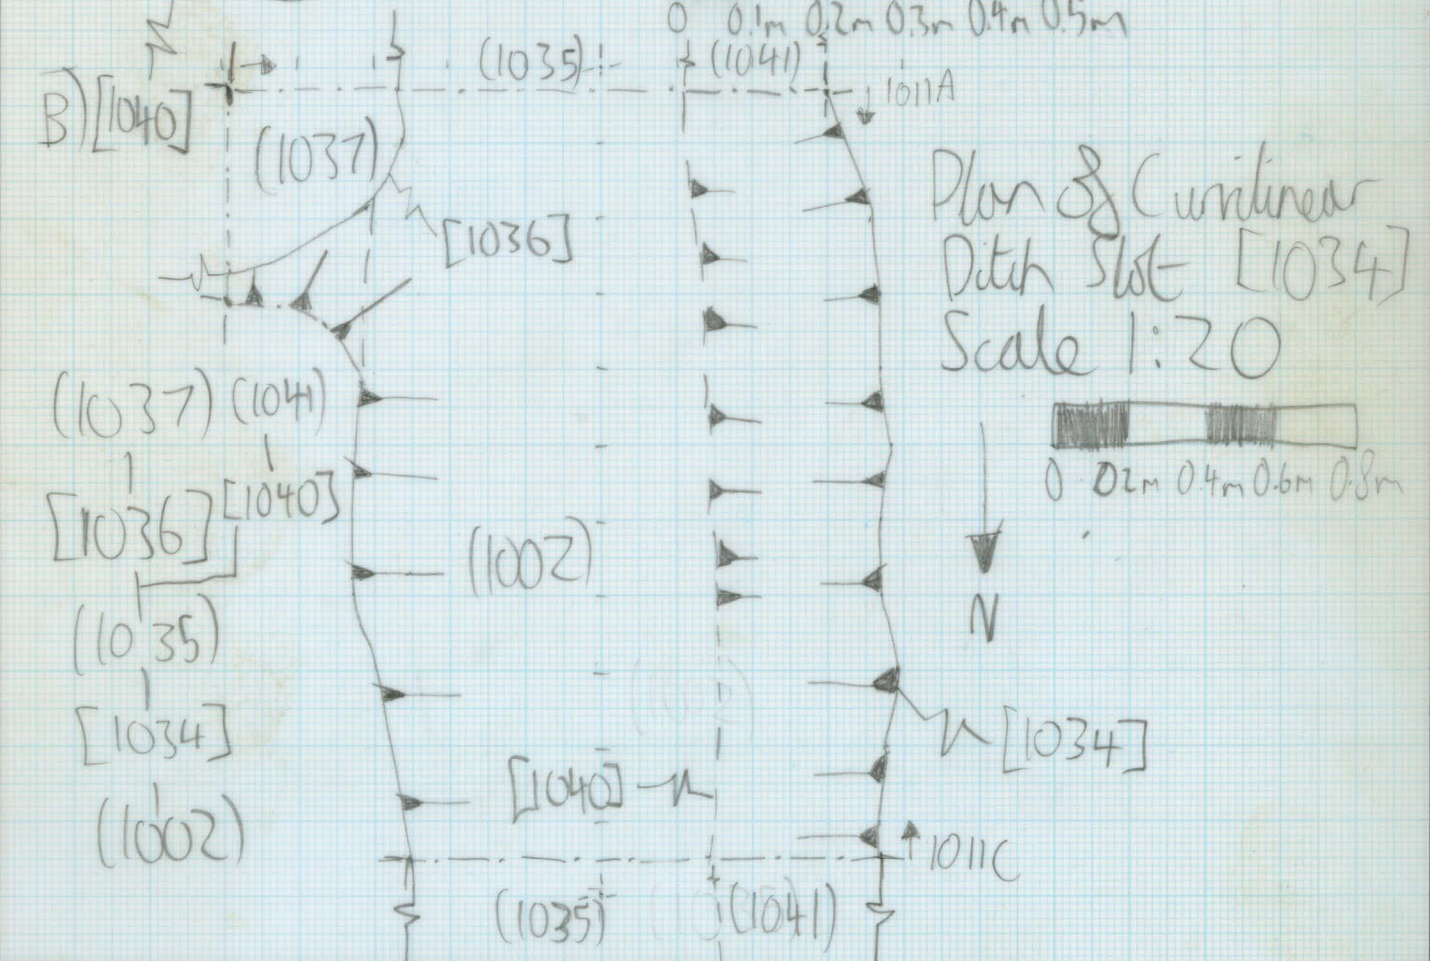 0 0.1m 0.2m 0.3m 0.4m 0.5m
(1035) (1041)
B) [1040]
1011A
(1037)
[1036]
Plan Of Curvilinear
Ditch Slot [1034]
Scale 1:20
0 0.2m 0.4m 0.6m 0.8m
N
(1037) (1041)
[1036] [1040]
(1035)
[1034]
(1002)
(1002)
[1034]
[1040]
1011C
(1035) (1041)